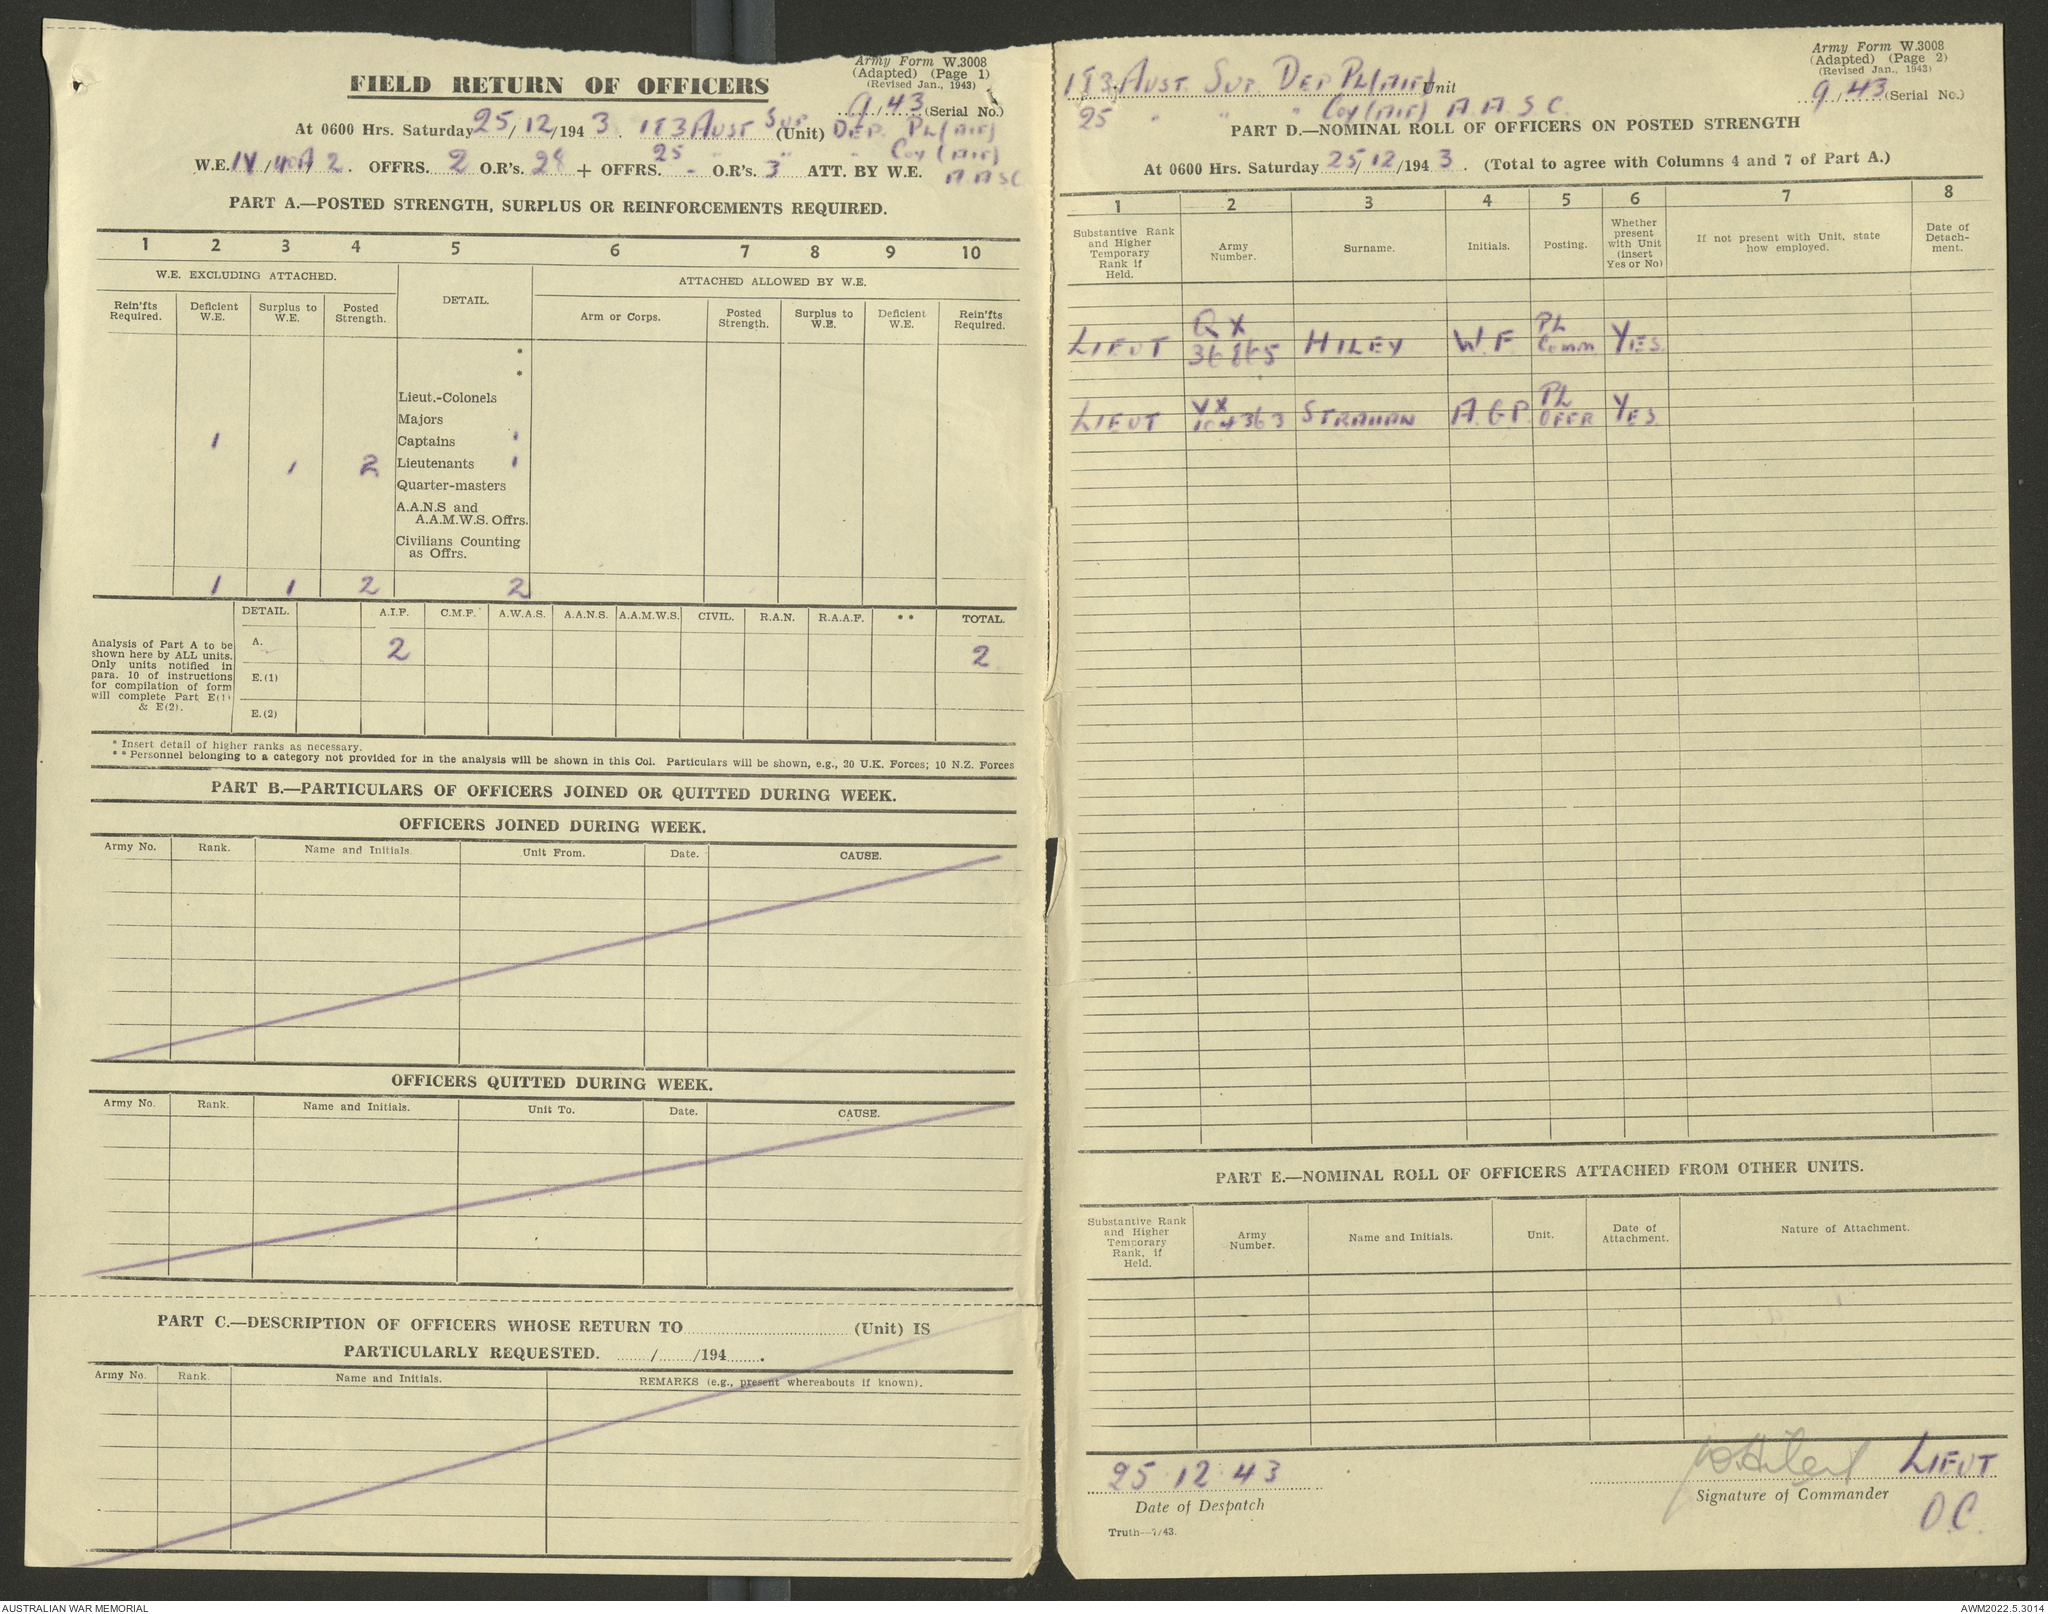 Army Form W.3008
(Adapted) (Page 1)
(Revised Jan., 1943)
FIELD RETURN OF OFFICERS
9/43 (Serial No.)
At 0600 Hrs. Saturday 25/12/1943. 183 AUST SUP (Unit) DEP. PL (AIF)
25 " " " COY (AIF)
W.E. IV/ 2. OFFRS. 2 O.R's. 28 + OFFRS. - O.R's. 3 ATT. BY W.E. AASC
PART A.—POSTED STRENGTH, SURPLUS OR REINFORCEMENTS REQUIRED.
1 2 3 4 5 6 7 8 9 10
W.E. EXCLUDING ATTACHED. DETAIL. ATTACHED ALLOWED BY W.E.
Rein'fts Required. Deficient W.E. Surplus to W.E. Posted Strength. Arm or Corps. Posted Strength. Surplus to W.E. Deficient W.E. Rein'fts Required.
*
*
Lieut.-Colonels
Majors
1 Captains 1
1 2 Lieutenants 1
Quarter-masters
A.A.N.S and
A.A.M.W.S. Offrs.
Civilians Counting
as Offrs.
1 1 2 2
DETAIL. A.I.F. C.M.F. A.W.A.S. A.A.N.S. A.A.M.W.S. CIVIL. R.A.N. R.A.A.F. ** TOTAL.
Analysis of Part A to be
shown here by ALL units.
Only units notified in
para. 10 of instructions
for compilation of form
will complete Part E(1)
& E(2).
A. 2 2
E.(1)
E.(2)
* Insert detail of higher ranks as necessary.
** Personnel belonging to a category not provided for in the analysis will be shown in this Col. Particulars will be shown, e.g., 20 U.K. Forces; 10 N.Z. Forces
PART B.—PARTICULARS OF OFFICERS JOINED OR QUITTED DURING WEEK.
OFFICERS JOINED DURING WEEK.
Army No. Rank. Name and Initials. Unit From. Date. CAUSE.
OFFICERS QUITTED DURING WEEK.
Army No. Rank. Name and Initials. Unit To. Date. CAUSE.
PART C.—DESCRIPTION OF OFFICERS WHOSE RETURN TO.......... (Unit) IS
PARTICULARLY REQUESTED. ......./......./194.......
Army No. Rank. Name and Initials. REMARKS (e.g., present whereabouts if known).
Army Form W.3008
(Adapted) (Page 2)
(Revised Jan., 1943)
183 AUST. SUP. DEP PL (AIF) Unit
9/43 (Serial No.)
25 " " " COY (AIF) A.A.S.C.
PART D.—NOMINAL ROLL OF OFFICERS ON POSTED STRENGTH
At 0600 Hrs. Saturday 25/12/1943. (Total to agree with Columns 4 and 7 of Part A.)
1 2 3 4 5 6 7 8
Substantive Rank and Higher Temporary Rank if Held. Army Number. Surname. Initials. Posting. Whether present with Unit (insert Yes or No) If not present with Unit, state how employed. Date of Detach-ment.
LIEUT QX 36865 HILEY W.F. PL COMM YES
LIEUT VX 104363 STRAHAN A.G.P. PL OFFR YES
PART E.—NOMINAL ROLL OF OFFICERS ATTACHED FROM OTHER UNITS.
Substantive Rank and Higher Temporary Rank, if Held. Army Number. Name and Initials. Unit. Date of Attachment. Nature of Attachment.
25.12.43
Date of Despatch
WHiley LIEUT
Signature of Commander
O.C.
Truth—7/43.
AUSTRALIAN WAR MEMORIAL
AWM2022.5.3014